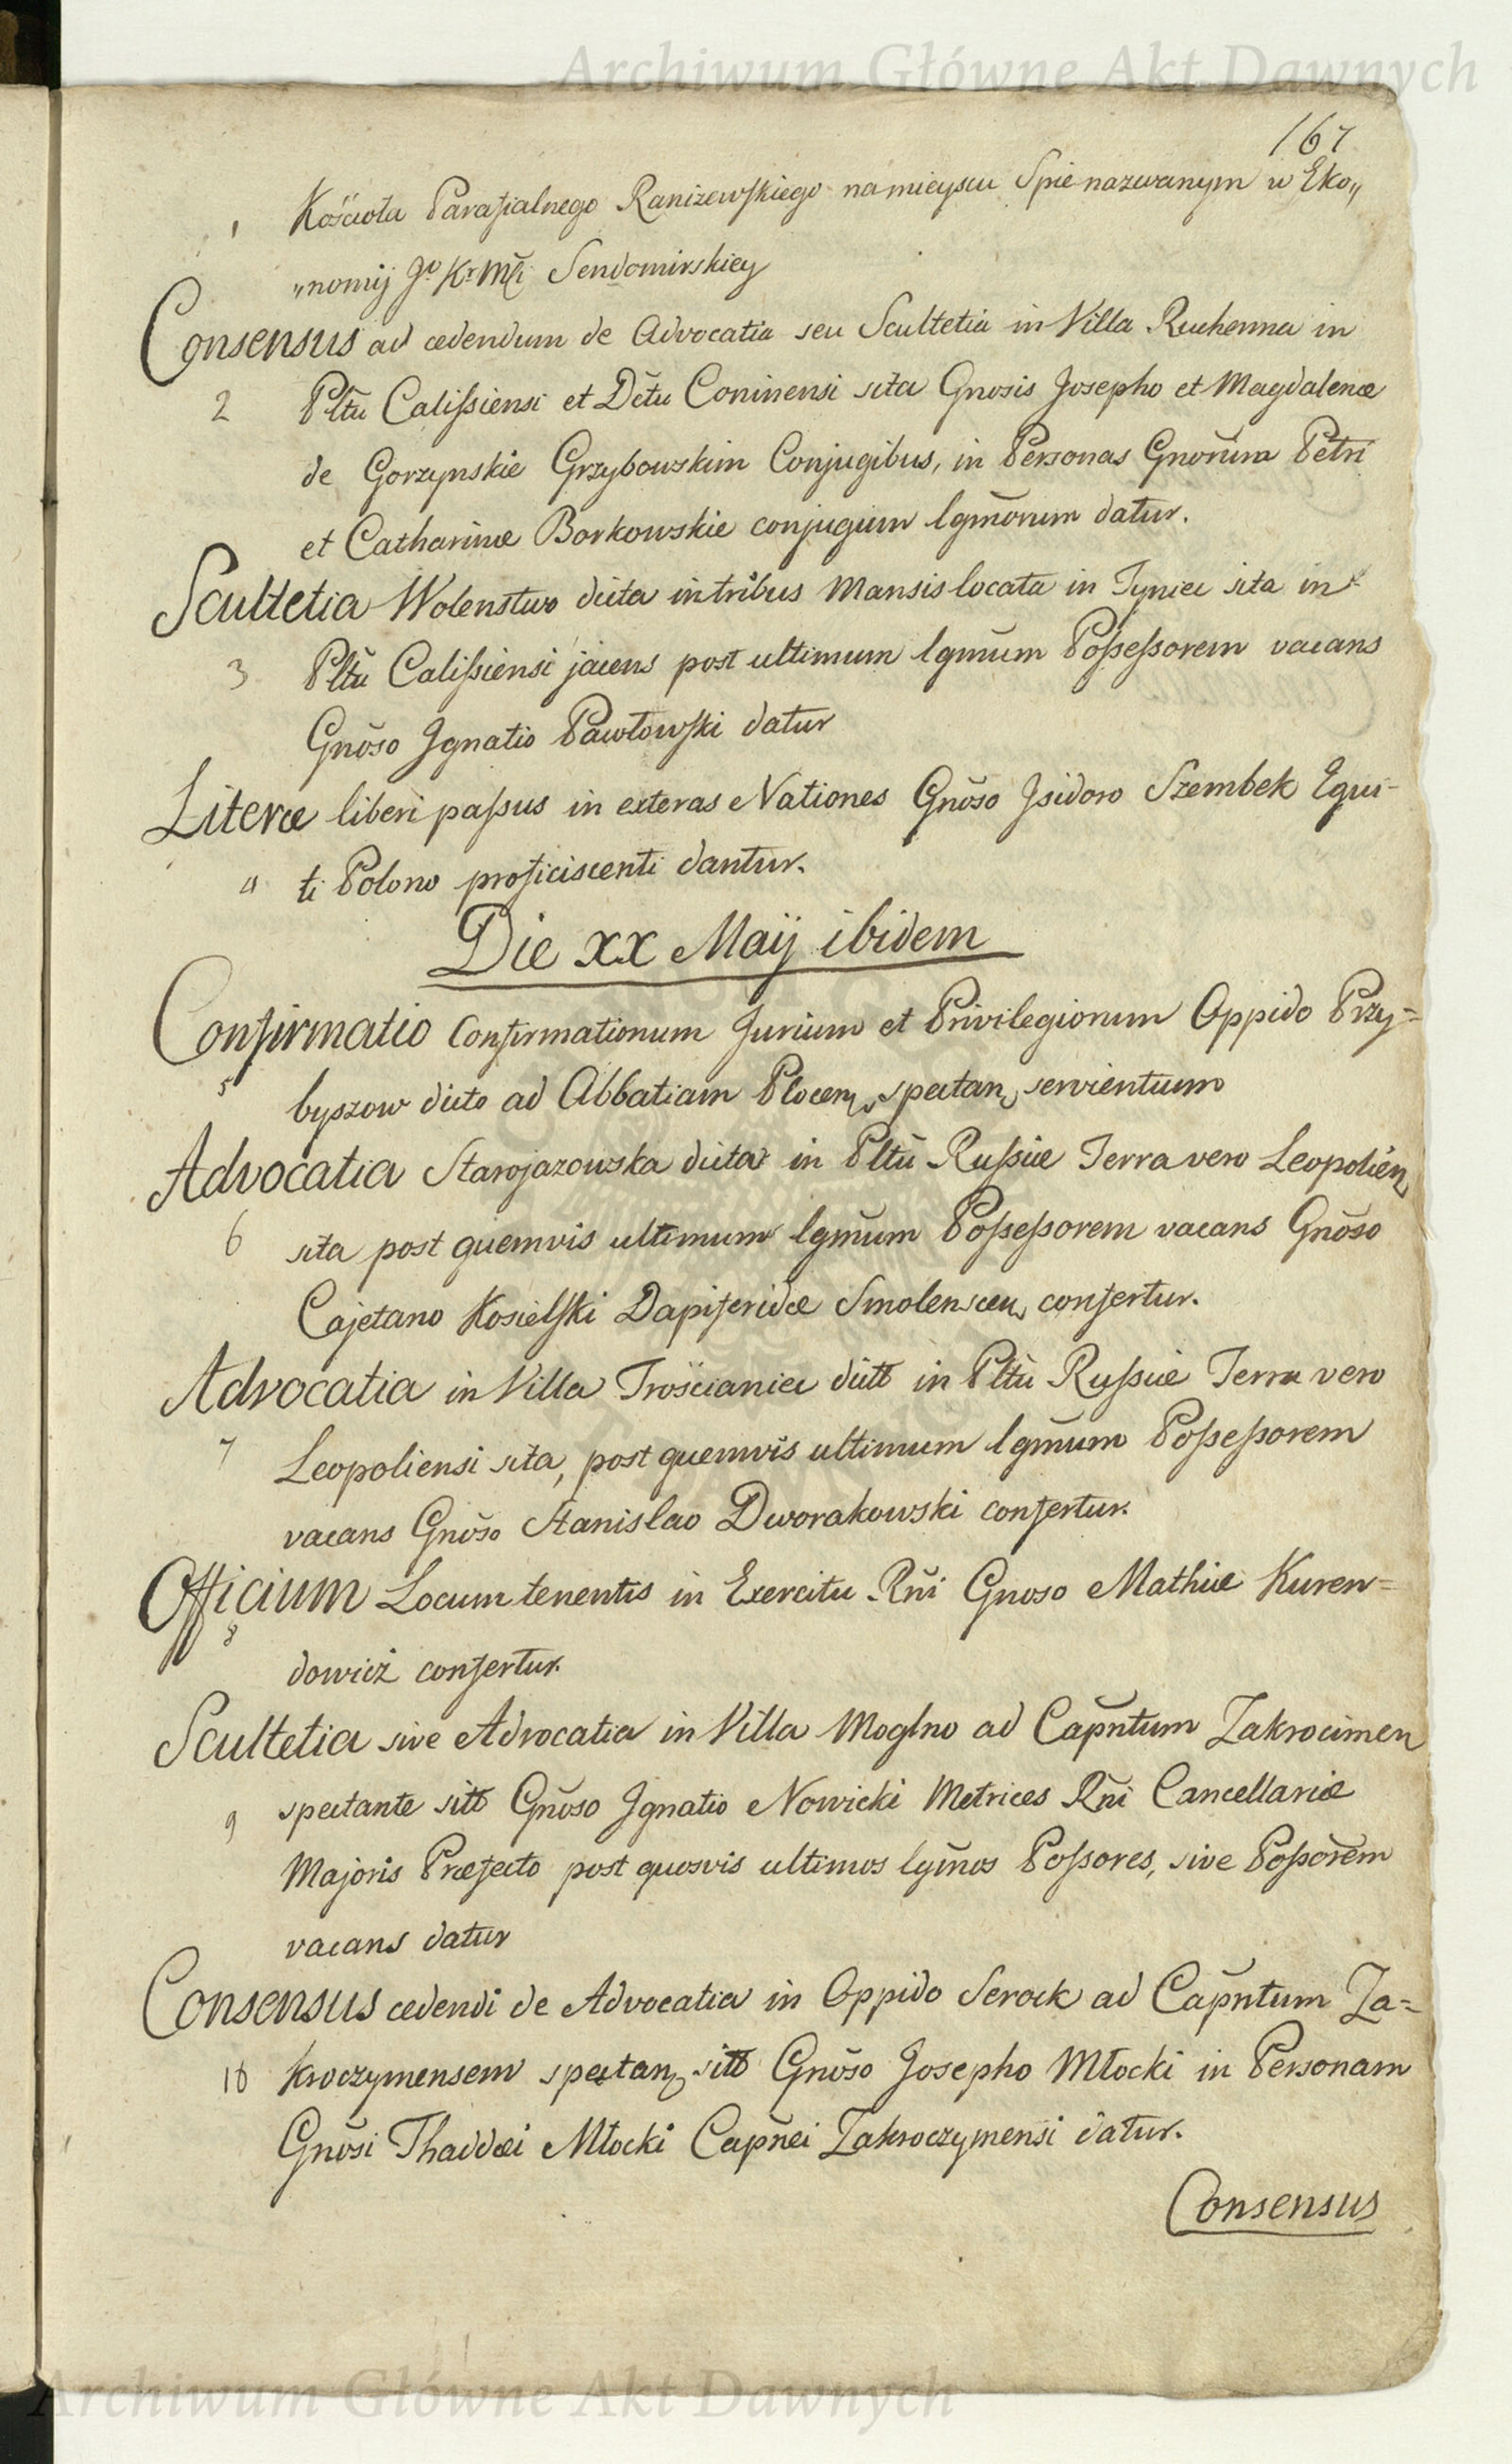 Archiwum Główne Akt Dawnych
167
1 Kościoła Parafialnego Raniżewskiego na mieyscu Spie nazwanym w Eko„
„nomij Jo Kr Mći Sendomirskiey
Consensus ad cedendum de Advocatia seu Scultetia in Villa Ruchenna in
2 Pltũ Calissiensi et Dctũ Coninensi sita Gnosis Josepho et Magdalenæ
de Gorzynskie Grzybowskim Conjugibus, in Personas Gnorũm Petri
et Catharinæ Borkowskie conjugum lgmõrum datur.
Scultetia Wolenstwo dicta in tribus Mansis locata in Tyniec sita in
3 Pltũ Calissiensi jacens post ultimum lgmũm Possessorem vacans
Gnõso Ignatio Pawłowski datur
Literæ liberi passus in exteras Nationes Gnõso Isidoro Szembek Equi-
4 ti Polono proficiscenti dantur.
Die XX Maij ibidem
Confirmatio Confirmationum Jurium et Privilegiorum Oppido Przy=
5 byszow dicto ad Abbatiam Plocen, spectan, servientium
Advocatia Starojazowska dicta in Pltũ Russiæ Terra vero Leopolien,
6 sita post quemvis ultimum lgmũm Possessorem vacans Gnõso
Cajetano Kosielski Dapiferidæ Smolenscen, confertur.
Advocatia in Villa Trościaniec ditt in Pltũ Russiæ Terra vero
7 Leopoliensi sita, post quemvis ultimum lgmũm Possessorem
vacans Gnõso Stanislao Dworakowski confertur.
Officium Locumtenentis in Exercitu Rñi Gnoso Mathiæ Kuren=
8 dowicz confertur.
Scultetia sive Advocatia in Villa Moglno ad Capñtum Zakrocimen
9 spectante sitt Gnõso Ignatio Nowicki Metrices Rñi Cancellariæ
Majoris Præfecto post quosvis ultimos lgmõs Possores, sive Possorẽm
vacans datur
Consensus cedendi de Advocatia in Oppido Serock ad Capñtum Za=
10 kroczymensem spectan, sitt Gnõso Josepho Młocki in Personam
Gnõsi Thaddæi Młocki Capñei Zakroczymensi datur.
Consensus
Archiwum Główne Akt Dawnych